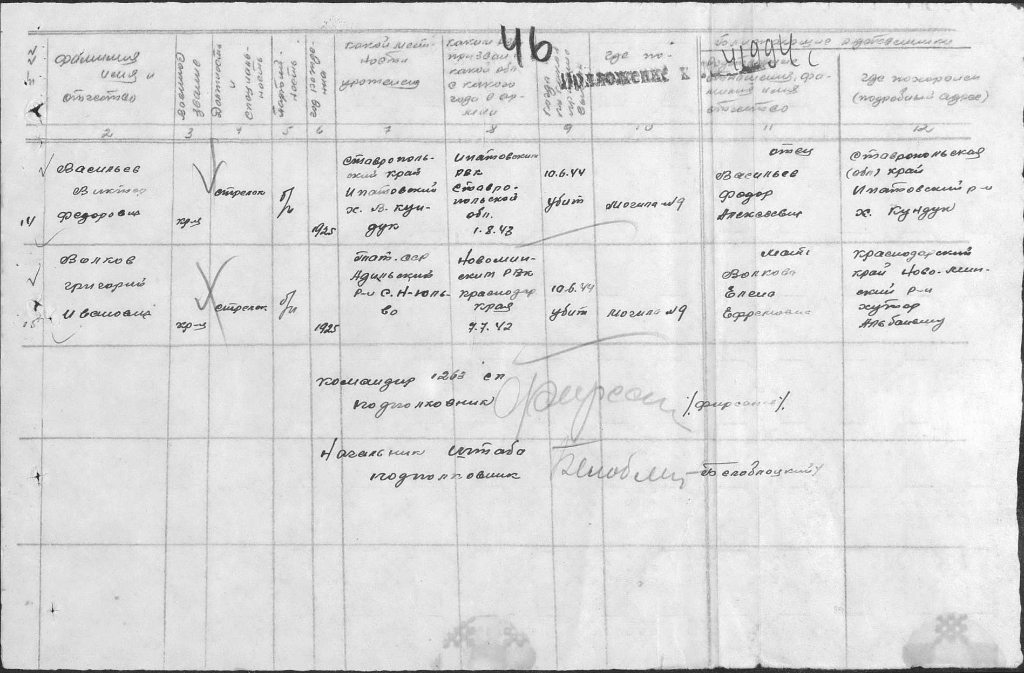 46
Приложение к
№№
Фамилия
имя и
отчество
Военное
звание
Должность
и
специаль-
ность
Партий-
ность
Год рожде-
ния
Какой мест-
ности
уроженец
Каким
призван
какой обл.
с какого
года в ар-
мии
Где по-
отчество
Где похоронен
(подробный адрес)
2
3
4
5
6
7
8
9
10
11
12
14
Васильев
Виктор
Федорович
кр-ц
стрелок
б/п
1925
Ставрополь-
ский край
Ипатовский
х. В. Кун-
дук
Ипатовским
РВК
Ставро-
польской
обл.
1.8.43
10.6.44
убит
могила №9
отец
Васильев
Федор
Алексеевич
Ставропольская
(обл) край
Ипатовский р-н
х. Кундук
15
Волков
Григорий
Иванович
кр-ц
стрелок
б/п
1925
Тат. сср
р-н С. Н-юль-
во
Новомин-
ским РВК
Краснодар
края
7.7.42
10.6.44
убит
могила №9
мать
Волкова
Елена
Ефремовна
Краснодарский
край Ново-мин-
ский р-н
хутор
Командир 1263 сп
подполковник
/Фирсанов/.
Начальник штаба
подполковник
/Белоблоцкий/